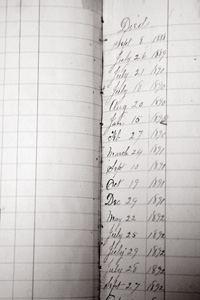 Died
Sept 8 1888
July 26 1889
July 21 1890
July 18 1890
Aug 20 1890
Jan 15
Feb 27 1890
March 24 1891
Sept 10 1890
Oct 19 1891
Dec 29 1891
May 22 1892
July 28 1892
July 29 1892
July 28 1892
Sept 27 1892